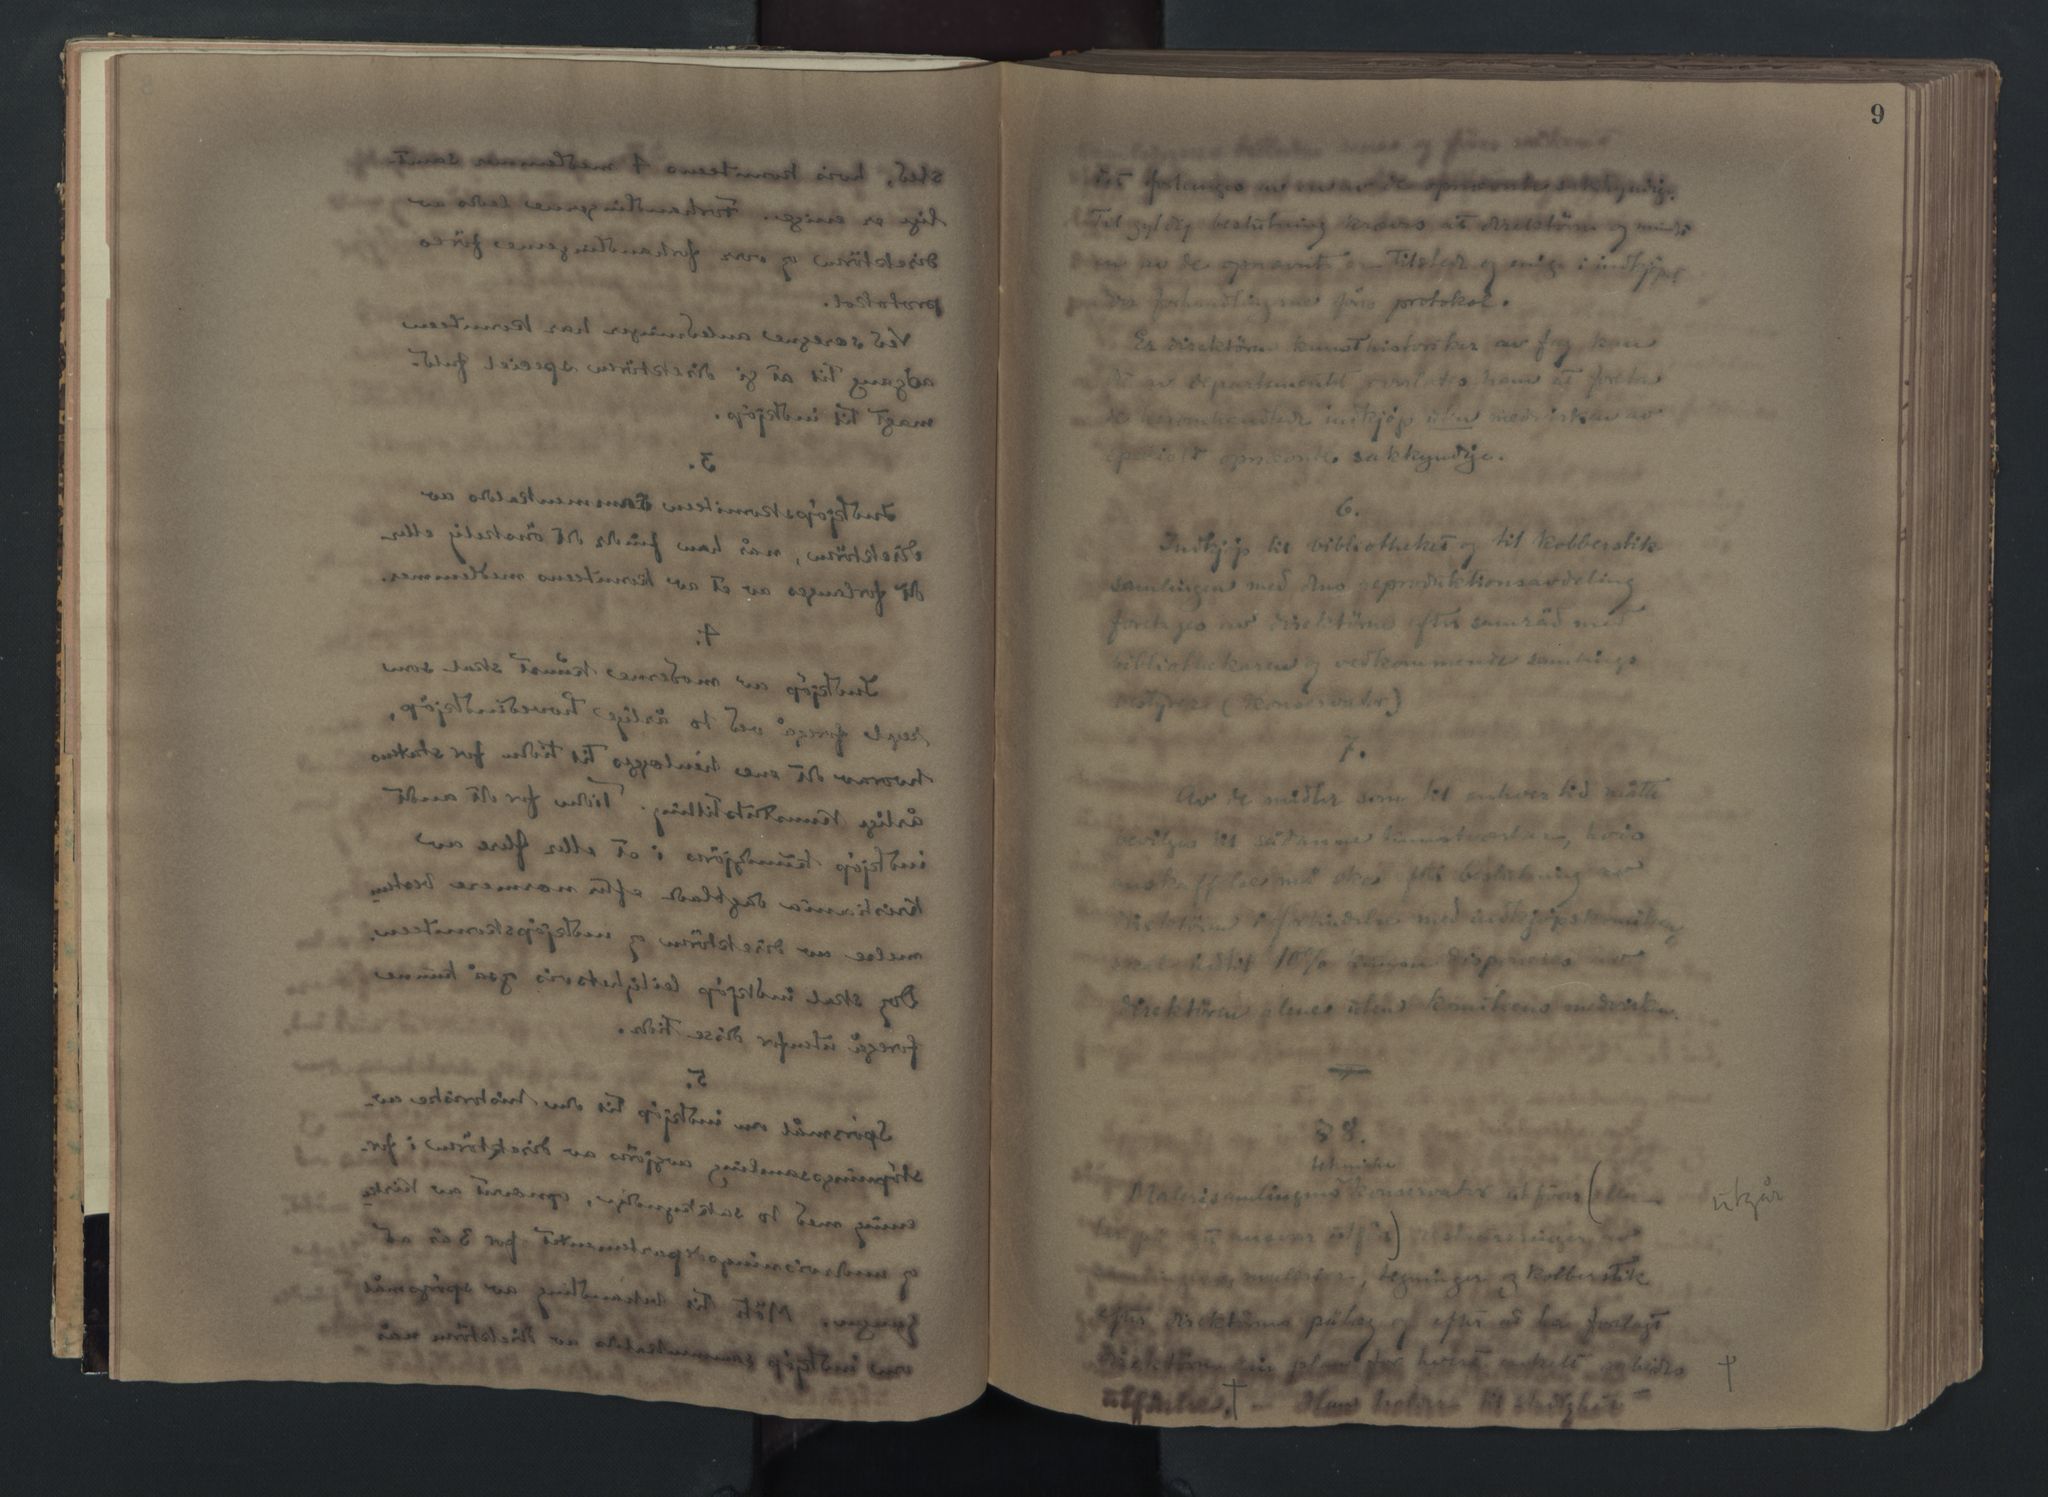 sted, hvis komiteens 4 medlemmer samt-
lige er enige. Forhandlingerne ledes av
direktören og over forhandlingerne föres
protokol.
Ved særegne anledninger har komiteen
adgang til at gi direktören speciel fuld-
magt til indkjöp.
3.
Indkjöpskomiteen sammenkaldes av
direktören, når han finder det önskelig eller
det forlanges av et av komiteens medlemmer.
4.
Indkjöp av moderne kunst skal som
regel foregå ved to årlige hovedindkjöp,
hvorav det ene henlægges til tiden for statens
årlige kunstutstilling. Tiden for det andet
indkjöp kundgjöres i et eller flere av
Kristiania dagblade efter nærmere bestem
melse av direktören og indkjöpskomiteen.
Dog skal indkjöp leilighetsvis også kunne
foregå utenfor disse tider.
5.
Spörsmål om indkjöp til den historiske av-
stöpningssamling avgjöres av direktören i for-
ening med to sakkyndige, opnævnt av Kirke
og undervisningsdepartementet for 3 år ad
gangen. Möte til behandling av spörsmål
om indkjöp sammenkaldes av direktören når
9
det forlanges av en av de opnævnte sakkyndige.
Til gyldig beslutning kræves at direktören og mindst
en av de opnævnte er tilstede og enige i indkjöpet
Over forhandlingerne föres protokol.
Er direktören kunsthistoriker av fag kan
det av departementet overlates ham at foreta
de heromhandlede indkjöp uten medvirken av
specielt opnævnte sakkyndige.
6.
Indkjöp til bibliotheket og til kobberstik
samlingen med dens reproduktionsavdeling
foretages av direktören efter samråd med
bibliothekaren og vedkommende samlings
bestyrer (konservator)
7.
Av de midler som til enhver tid måtte
bevilges til sådanne kunstverker, hvis
anskaffelse må skje efter beslutning av
direktören i forbindelse med indkjöpskomiteen
skal indtil 10% kunne disponeres av
direktören alene uten komiteens medvirken.
§ 8.
tekniske
Malerisamlingens konservator utförer (eller
utgår
på sit ansvar utför) restaureringer av
samlingens malerier, tegninger og kobberstik
efter direktörens pålæg og efter at ha forelagt
direktören sin plan for hvert enkelt arbeides
utförelse. † — Han holder til stadighet
†